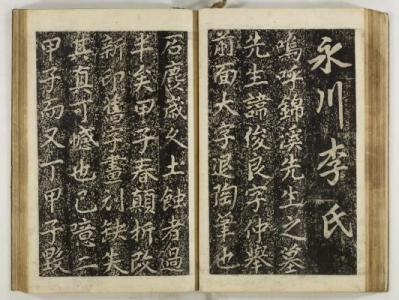 永川李氏
嗚呼錦溪先生之墓
先生諱俊良字仲擧
前面大字退陶筆也
石歲久土蝕者過
半矣甲子春顛折改
新印舊字畫刓缺失
其真可憾也已噫二
甲子而又丁甲子數